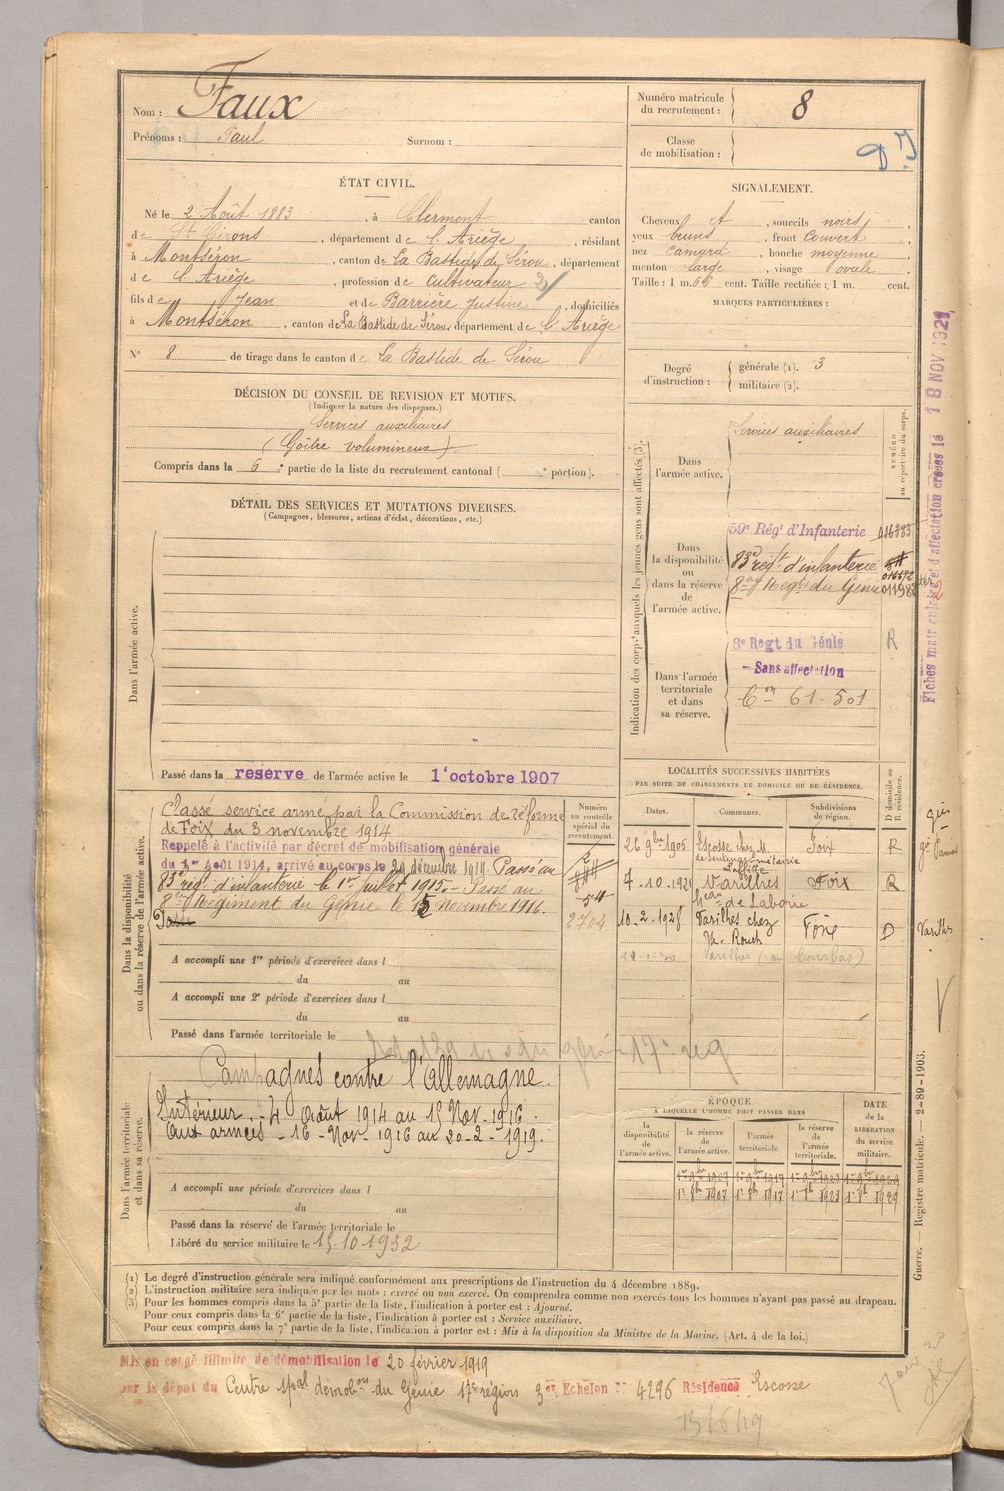 Nom : Faux
Prénoms : Paul Surnom :
Numéro matricule du recrutement : 8
Classe de mobilisation :
ÉTAT CIVIL.
Né le 2 Août 1883, à Clermont canton
de St Girons, département de l'Ariège, résidant
à Montséron, canton de La Bastide de Sérou, département
de l'Ariège, profession de cultivateur 2/
fils de Jean et de Barrière Justine, domiciliés
à Montséron, canton de La Bastide de Sérou, département de l'Ariège
N° 8 de tirage dans le canton de La Bastide de Sérou
SIGNALEMENT.
Cheveux et, sourcils noirs,
yeux bruns, front couvert,
nez camard, bouche moyenne,
menton large, visage ovale.
Taille : 1 m. 66 cent. Taille rectifiée : 1 m. cent.
MARQUES PARTICULIÈRES :
Degré d'instruction : générale (1). 3
militaire (2).
DÉCISION DU CONSEIL DE REVISION ET MOTIFS.
(Indiquer la nature des dispenses.)
Services auxiliaires
(Goître volumineux)
Compris dans la 6e partie de la liste du recrutement cantonal ( e portion).
DÉTAIL DES SERVICES ET MUTATIONS DIVERSES.
(Campagnes, blessures, actions d'éclat, décorations, etc.)
Dans l'armée active.
Passé dans la réserve de l'armée active le 1er octobre 1907
Indication des corps auxquels les jeunes gens sont affectés (3).
NUMÉRO au répertoire du corps.
Dans l'armée active.
Services auxiliaires
Dans la disponibilité ou dans la réserve de l'armée active.
59e Régt d'Infanterie 016383
83e régt d'infanterie
8e Régt du Génie 01198
Dans l'armée territoriale et dans sa réserve.
8e Regt du Génie R
- Sans affectation
Con 61-501
Fiches matricule et d'affectation créées le 18 NOV 1921
Dans la disponibilité ou dans la réserve de l'armée active.
Numéro au contrôle spécial du recrutement.
Classé service armé par la Commission de réforme
de Foix du 3 novembre 1914
Rappelé à l'activité par décret de mobilisation générale
du 1er Août 1914, arrivé au corps le 20 décembre 1914. Passé au
83e régt d'infanterie le 1er juillet 1915. - Passé au
8e Régiment du Génie le 15 novembre 1916.
Passé
2704
A accompli une 1re période d'exercices dans l
du au
A accompli une 2e période d'exercices dans l
du au
Passé dans l'armée territoriale le
LOCALITÉS SUCCESSIVES HABITÉES
PAR SUITE DE CHANGEMENTS DE DOMICILE OU DE RÉSIDENCE.
Dates. Communes. Subdivisions de région. D domicile ou R résidence.
26 9bre 1905 Escosse chez M. Foix R
de métairie
7-10-1921 Varilhes Foix R
de Laborie
10-2-1928 Varilhes chez Foix D
M. Rouch
Varilhes
Dans l'armée territoriale et dans sa réserve.
Campagnes contre l'Allemagne.
Intérieur - 4 Août 1914 au 15 Nov. 1916.
Aux armées - 16 - Nov - 1916 au 20-2-1919.
A accompli une période d'exercices dans l
du au
Passé dans la réserve de l'armée territoriale le
Libéré du service militaire le 15.10.1932
ÉPOQUE
À LAQUELLE L'HOMME DOIT PASSER DANS
DATE de la LIBÉRATION du service militaire.
la disponibilité de l'armée active. la réserve de l'armée active. l'armée territoriale. la réserve de l'armée territoriale.
1er 9bre 1907 1er 9bre 1917 1er 9bre 1923 1er 9bre 1929
1er 8bre 1907 1er 8bre 1917 1er 8bre 1923 1er 8bre 1929
Guerre. — Registre matricule. — 2-89-1903.
(1) Le degré d'instruction générale sera indiqué conformément aux prescriptions de l'instruction du 4 décembre 1889.
(2) L'instruction militaire sera indiquée par les mots : exercé ou non exercé. On comprendra comme non exercés tous les hommes n'ayant pas passé au drapeau.
(3) Pour les hommes compris dans la 5e partie de la liste, l'indication à porter est : Ajourné.
Pour ceux compris dans la 6e partie de la liste, l'indication à porter est : Service auxiliaire.
Pour ceux compris dans la 7e partie de la liste, l'indication à porter est : Mis à la disposition du Ministre de la Marine. (Art. 4 de la loi.)
Mis en congé illimité de démobilisation le 20 février 1919
par le dépôt du Centre pal démobon du Génie 17e région 3er Echelon N° 4296 Résidence Escosse
13/6/19